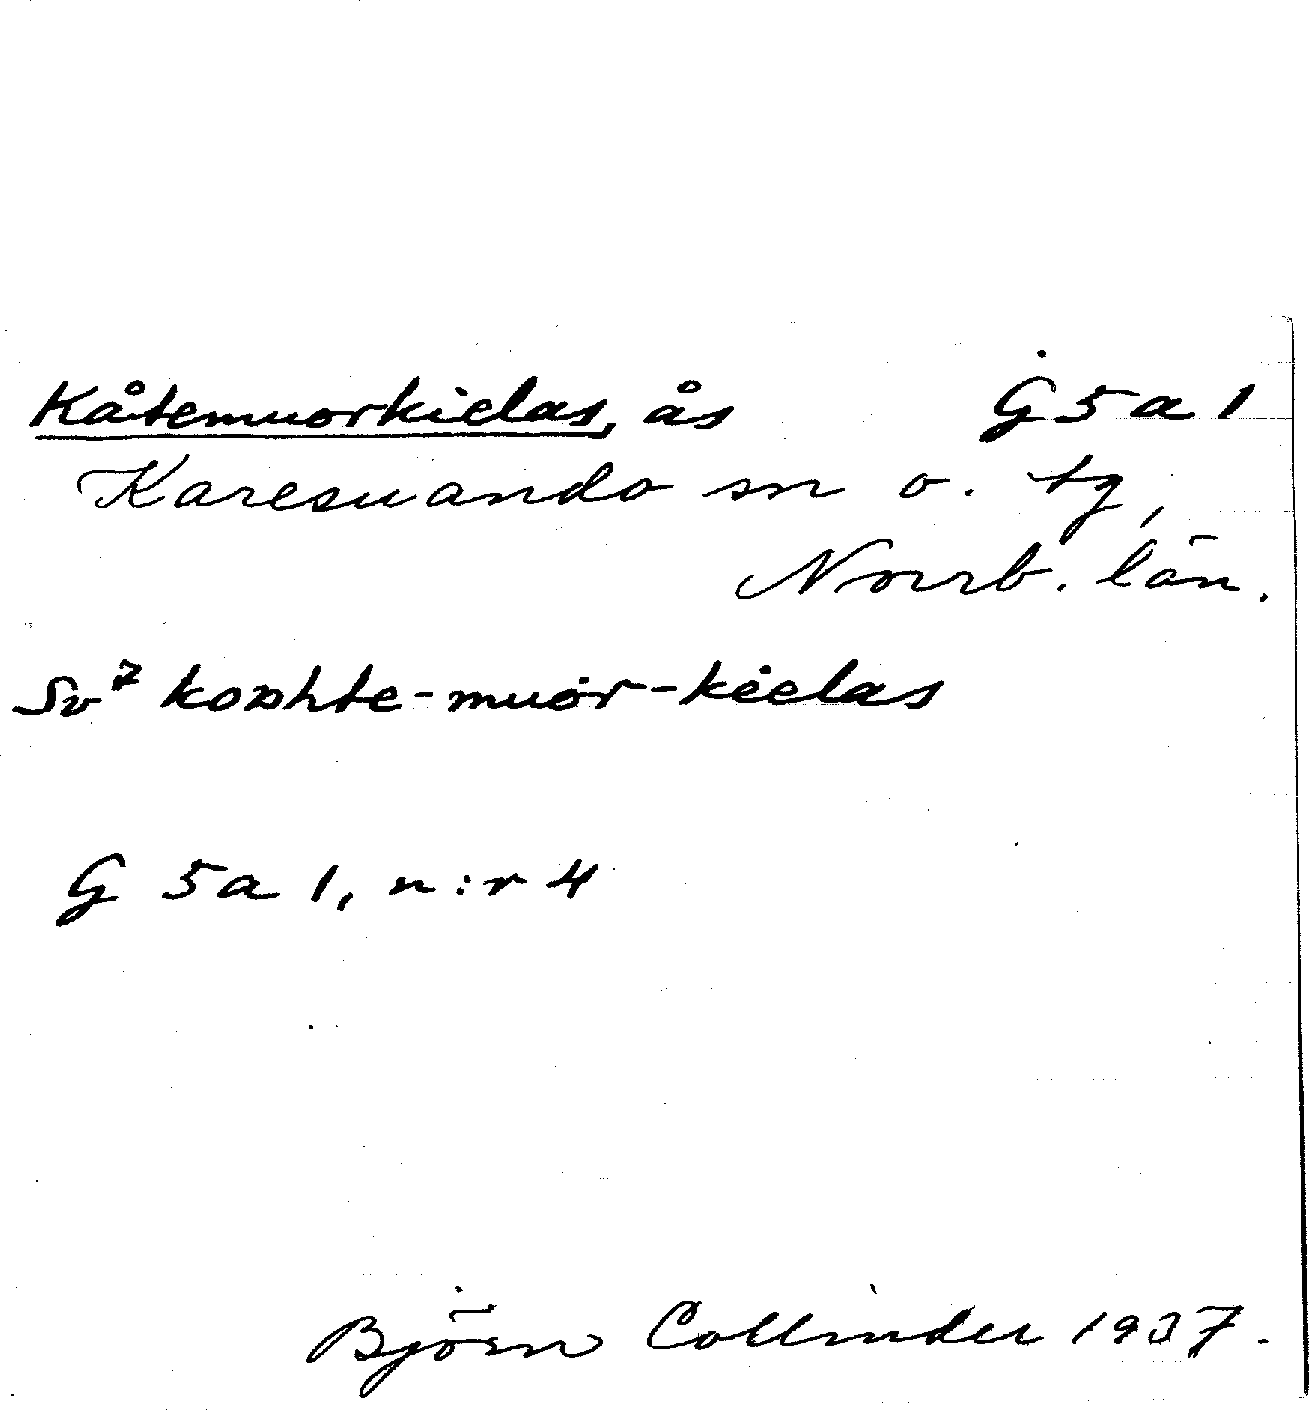 Kåtemuorkielas, ås G 5 a 1
Karesuando sn o. tg,
Norrb. län.
Sv⁷ koɒhte-muȯr-kėelas
G 5 a 1, n:r 4
Björn Collinder 1937.